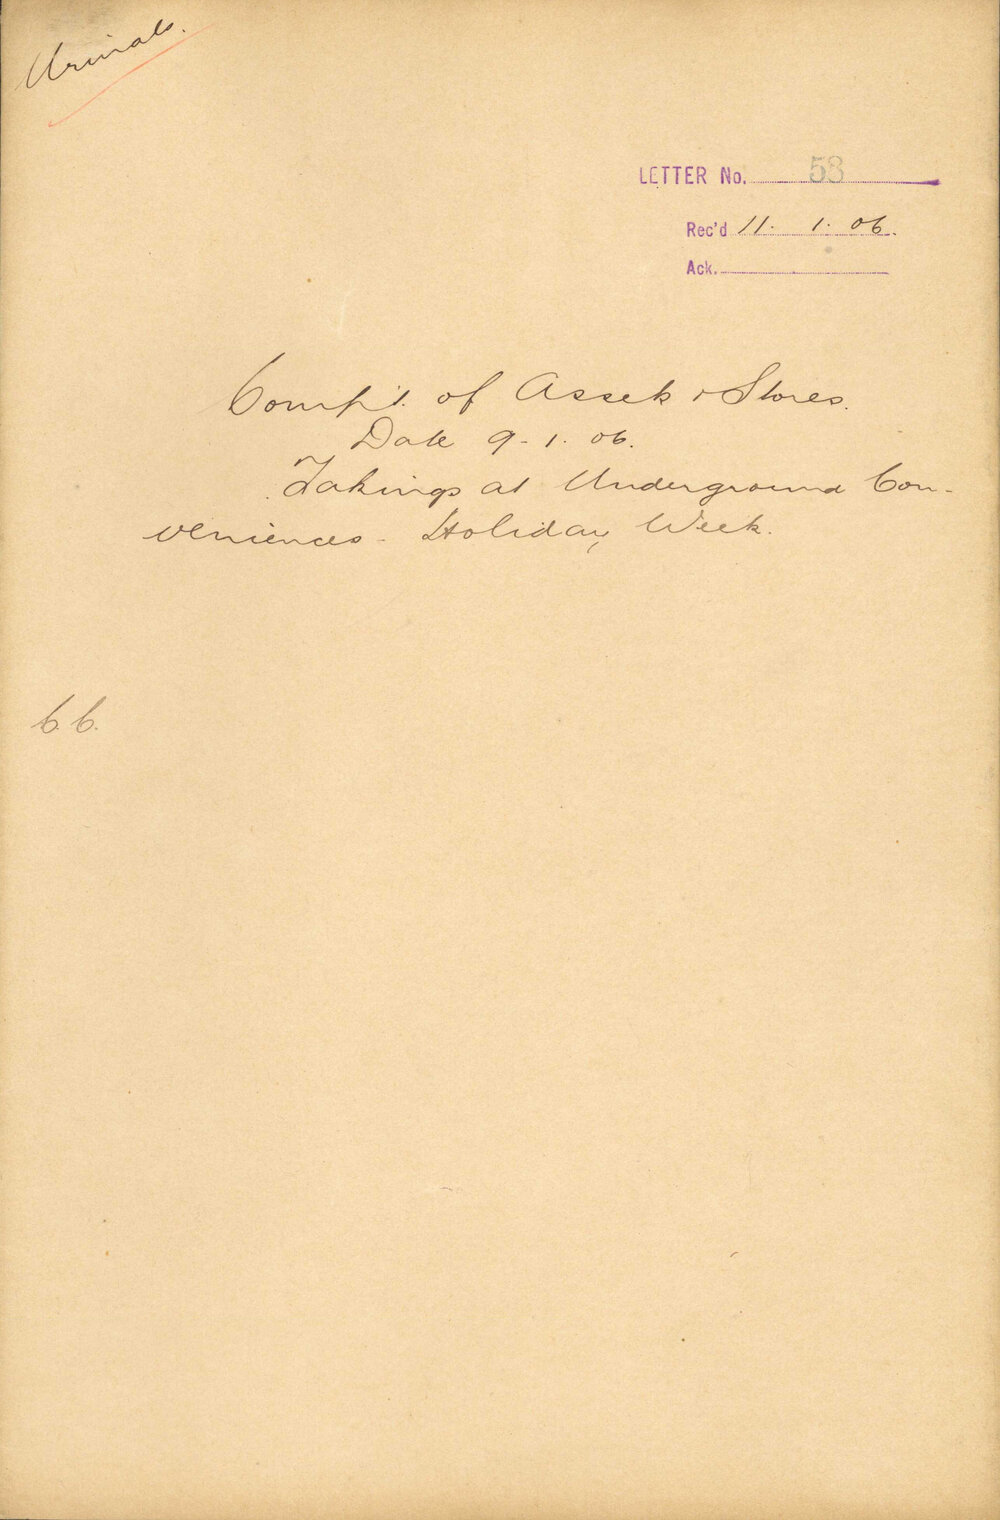 Urinals.
LETTER No. 53
Rec'd 11. 1. 06.
Ack.
Compt. of Assets & Stores.
Date 9-1.06.
Takings at Underground Con-
veniences - Holiday Week.
C.C.